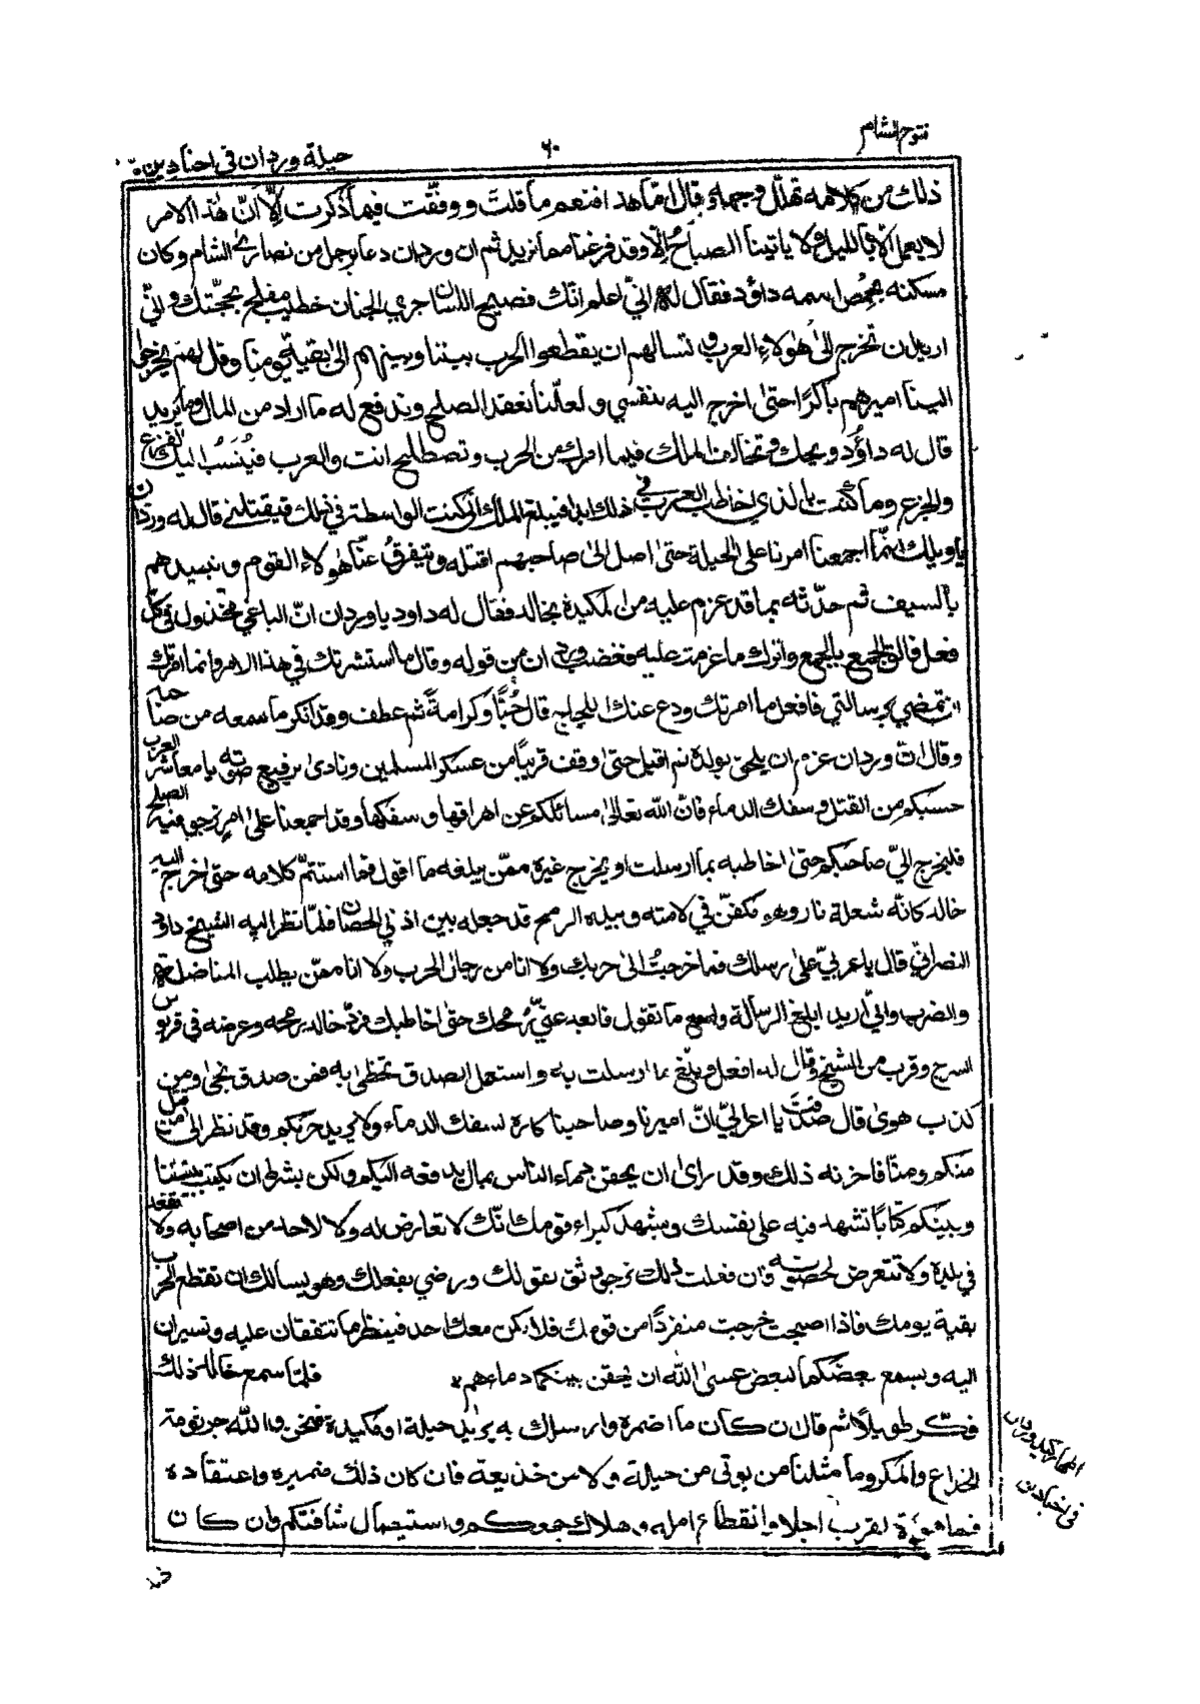 فتوح الشام
٦٠
حيلة وردان في اجنادين
ذلك من كلامه تهلل وجهه وقال امّا هذا فنعم ما قلتَ ووفّقت فيما ذكرت الّا انّ هٰذا الامر
لا يعمل الّا بالليل ولا ياتينا الصباح الّا وقد فرغنا مما نريد ثم ان وردان دعا برجل من نصارى الشام وكان
مسكنه بحمص اسمه داؤد فقال له انّي اعلم انّك فصيح اللسان جري الجنان خطيب مفلح بحجّتك وانّي
اريد ان تخرج الىٰ هٰؤلاء العرب وتسالهم ان يقطعوا الحرب بيننا وبينهم الىٰ بقية يومنا وقل لهم يخرج
الينا اميرهم باكرًا حتىٰ اخرج اليه بنفسي ولعلّنا نعقد الصلح وندفع له ما اراد من المال وما يريد
قال له داؤد ويحك وتخالف الملك فيما امرك من الحرب وتصطلح انت والعرب فيُنسَبُ اليك الفزع
والجزع وما كنت بالذي اخاطب العرب في ذلك ابدا فيبلغ الملك انّي كنت الواسطة في ذلك فيقتلني قال له وردان
يا ويلك انّما اجمعنا امرنا على الحيلة حتىٰ اصل الىٰ صاحبهم اقتله ويتفرقُ عنّا هٰؤلاء القوم ونبيدهم
بالسيف ثم حدّثه بما قد عزم عليه من المكيدة بخالد فقال له داود يا وردان انّ الباغي مخذول في كلّ
فعل فالق الجمع بالجمع واترك ما عزمت عليه فغضب وردان من قوله وقال ما استشرتك في هذا الامر وانما امرتك
ان تمضي برسالتي فافعل ما امرتك ودع عنك اللجاج قال حُبًّا وكرامةً ثم عطف وقد انكر ما سمعه من صاحبه
وقال انّ وردان عزم ان يلحق بولده ثم اقبل حتىٰ اوقف قريبًا من عسكر المسلمين ونادىٰ برفيع صوته يا معاشر العرب
حسبكم من القتل وسفك الدماء فانّ الله تعالىٰ مسائلكم عن اهراقها وسفكها وقد اجمعنا علىٰ امرٍ نرجو فيه الصلح
فليخرج اليّ صاحبكم حتىٰ اخاطبه بما ارسلت او يخرج غيره ممّن يبلغه ما اقول فما استتمّ كلامه حتىٰ اخرج اليه
خالد كانّه شعلة نار وهو مكفّن في لامته وبيده الرمح قد جعله بين اذني الحصان فلمّا نظر اليه الشيخ داود
النصراني قال يا عربيّ علىٰ رسلك فما خرجتُ الىٰ حربك ولا انا من رجال الحرب ولا انا ممّن يطلب المناضلة
والضرب وانّي اريد ابلغ الرسالة واسمع ما تقول فابعد عنّي رُمحك حتىٰ اخاطبك فردّ خالد رمحه وعرضه في قربوس
السرج وقرب من الشيخ وقال له افعل وبلّغ بما ارسلت به واستعمل الصدق تحظىٰ به فمن صدق نجىٰ ومن
كذب هوىٰ قال صدقتَ يا اعرابيّ انّ اميرنا وصاحبنا كاره لسفك الدماء ولا يريد حربكم وقد نظر الىٰ من قتل
منكم ومنّا فاحزنه ذلك وقد راىٰ ان يحقن دماء الناس بمال يدفعه اليكم ولكن بشرط ان يكتب بيننا
وبينكم كتابًا تشهد فيه علىٰ نفسك ويشهد كبراء قومك انّك لا تعارض له ولا لاحد من اصحابه ولا تقعد
في بلده ولا تتعرض لحصونه فان فعلت ذلك نرجو وثق بقولك ورضي بفعلك وهو يسالك ان تقطع الحرب
بقية يومك فاذا اصبحت خرجت منفردًا من قومك فلا يكن معك احد فينظر ما تتفقان عليه وتسيران
اليه ويسمع بعضكما لبعض عسىٰ الله ان يحقن بينكما دماءهم * فلمّا سمع خالد ذلك
فكّر طويلًا ثم قال ان كان ما اضمره وارسلك به يريد حيلة او مكيدة فنحن والله جرثومة
الخداع والمكر وما مثلنا من يوتي من حيلة ولا من خديعة فان كان ذلك ضميره واعتقاده
فما هو الا لقرب اجله وانقطاع امله وهلاك جمعكم واستيصال شافتكم وان كان
اظهار كيد وردان
في اجنادين